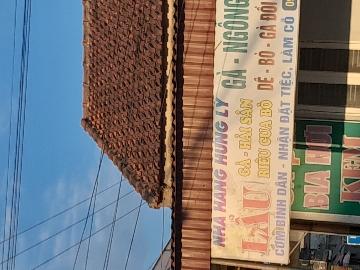 NHÀ HÀNG HÙNG LÝ
GÀ - NGỖNG
LẨU
GÀ - HẢI SẢN
RIÊU CUA BÒ
DÊ - BÒ - GÀ ĐỒI
CƠM BÌNH DÂN - NHẬN ĐẶT TIỆC, LÀM CỖ
BIA HƠI